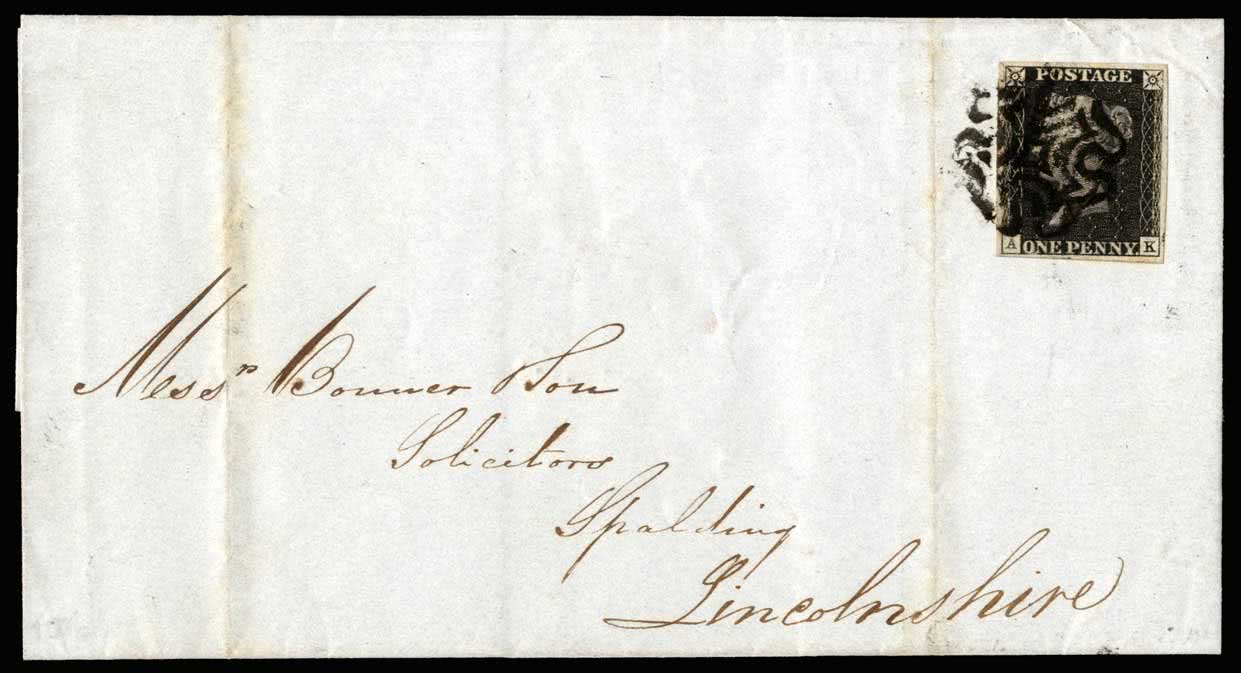 POSTAGE
A ONE PENNY. K
Messrs Bonner & Son
Solicitors
Spalding
Lincolnshire